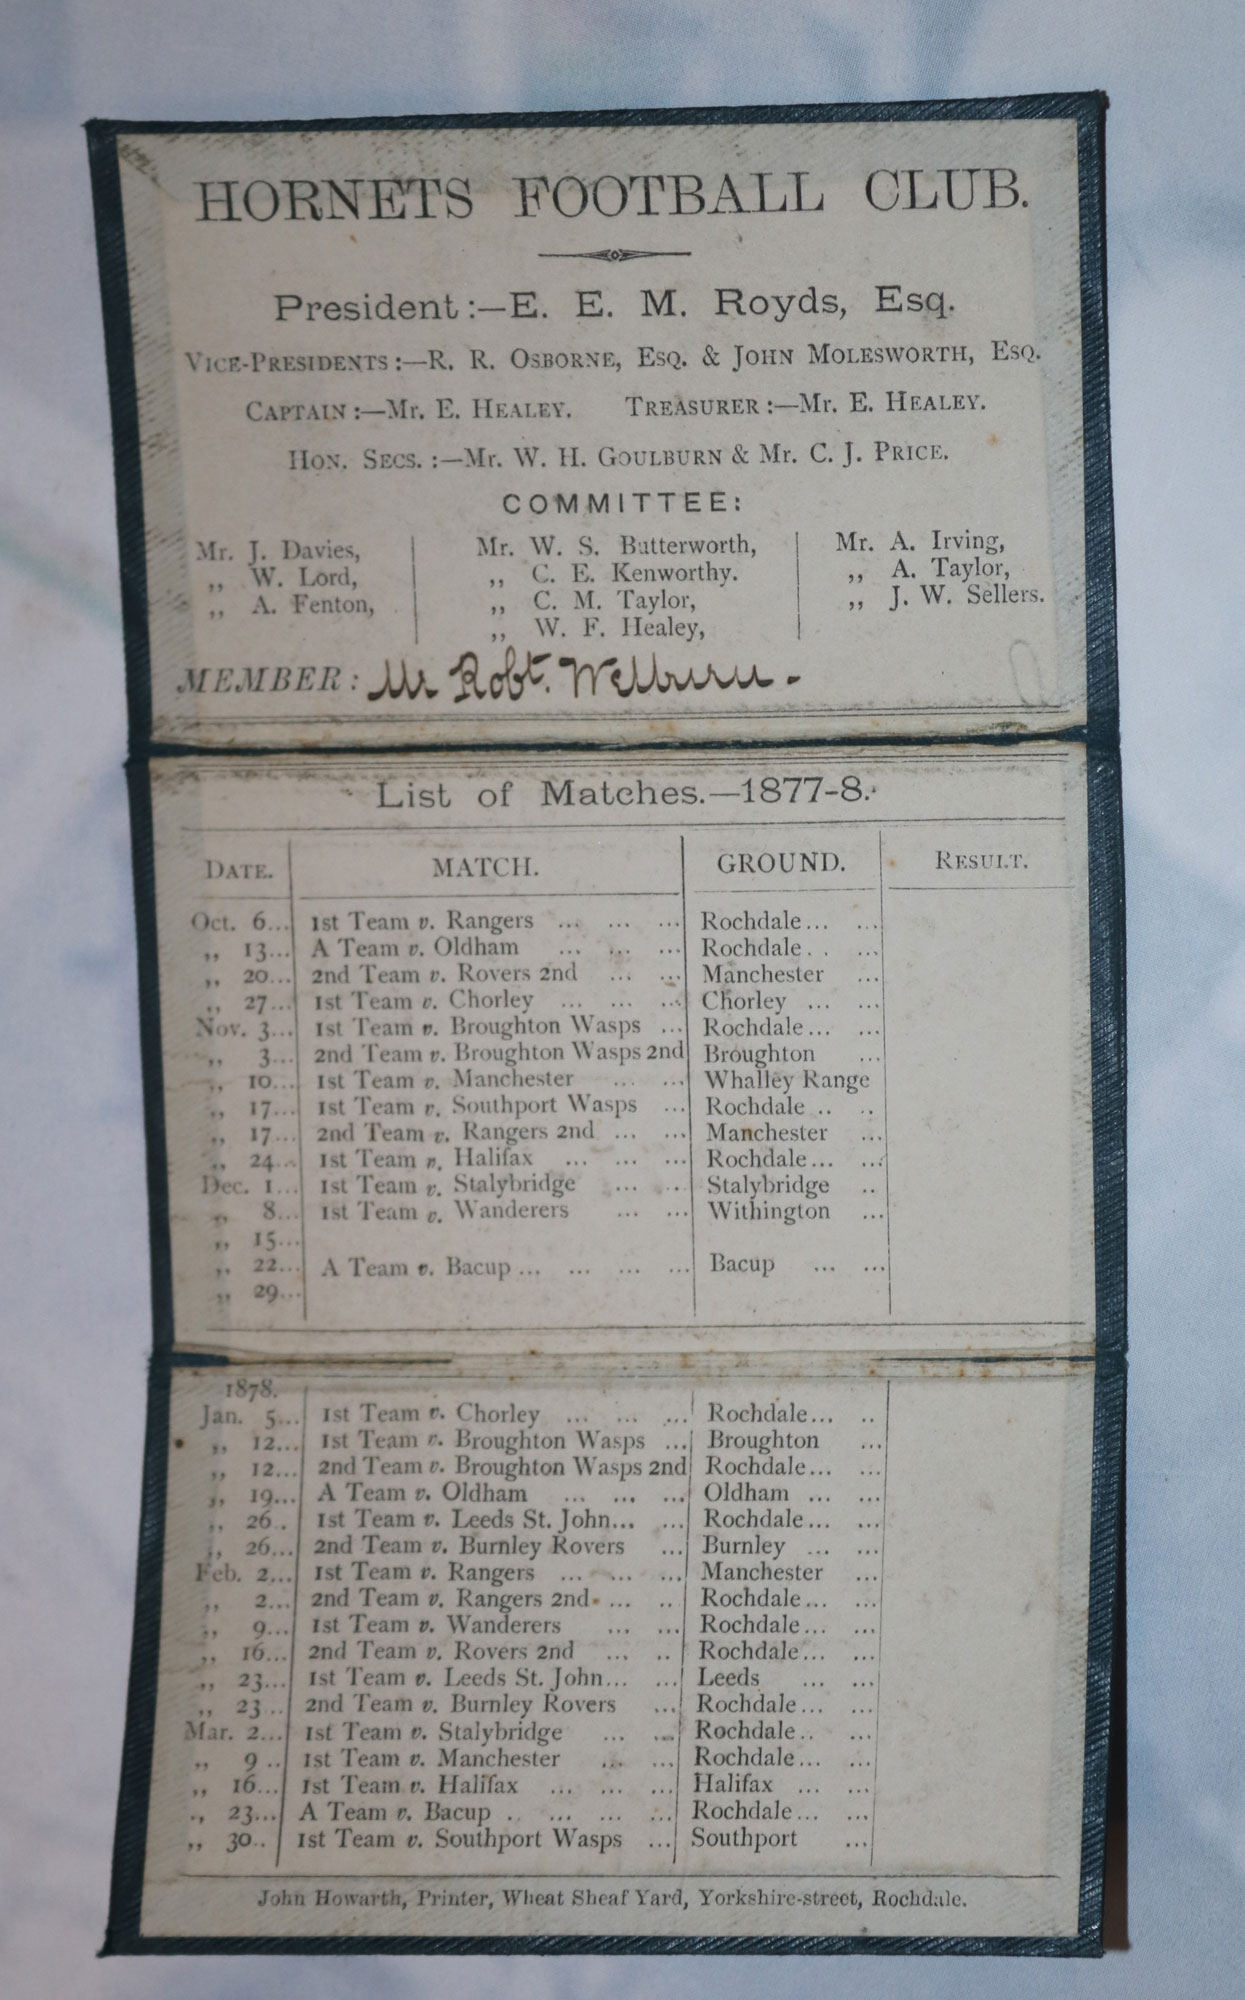 HORNETS FOOTBALL CLUB.
President:—E. E. M. Royds, Esq.
VICE-PRESIDENTS:—R. R. OSBORNE, ESQ. & JOHN MOLESWORTH, ESQ.
CAPTAIN:—MR. E. HEALEY. TREASURER:—MR. E. HEALEY.
HON. SECS.:—MR. W. H. GOULBURN & MR. C. J. PRICE.
COMMITTEE:
Mr. J. Davies, Mr. W. S. Butterworth, Mr. A. Irving,
,, W. Lord, ,, C. E. Kenworthy. ,, A. Taylor,
,, A. Fenton, ,, C. M. Taylor, ,, J. W. Sellers.
,, W. F. Healey,
MEMBER: Mr Robt. Welburn -
List of Matches.—1877-8.
DATE. MATCH. GROUND. RESULT.
Oct. 6... 1st Team v. Rangers ... ... ... Rochdale... ...
,, 13... A Team v. Oldham ... ... ... Rochdale. . ...
,, 20... 2nd Team v. Rovers 2nd ... ... Manchester ...
,, 27... 1st Team v. Chorley ... ... ... Chorley ... ...
Nov. 3... 1st Team v. Broughton Wasps ... Rochdale... ...
,, 3... 2nd Team v. Broughton Wasps 2nd Broughton ...
,, 10... 1st Team v. Manchester ... ... Whalley Range
,, 17... 1st Team v. Southport Wasps ... Rochdale .. ..
,, 17... 2nd Team v. Rangers 2nd ... ... Manchester ...
,, 24... 1st Team v. Halifax ... ... ... Rochdale... ...
Dec. 1... 1st Team v. Stalybridge ... .. Stalybridge ..
,, 8... 1st Team v. Wanderers ... ... Withington ...
,, 15...
,, 22... A Team v. Bacup ... ... ... ... Bacup ... ...
,, 29...
1878.
Jan. 5... 1st Team v. Chorley ... ... ... Rochdale... ..
,, 12... 1st Team v. Broughton Wasps ... Broughton ...
,, 12... 2nd Team v. Broughton Wasps 2nd Rochdale... ...
,, 19... A Team v. Oldham ... ... ... Oldham ... ...
,, 26.. 1st Team v. Leeds St. John... ... Rochdale... ...
,, 26... 2nd Team v. Burnley Rovers ... Burnley ... ...
Feb. 2... 1st Team v. Rangers ... ... ... Manchester ...
,, 2... 2nd Team v. Rangers 2nd ... .. Rochdale... ...
,, 9... 1st Team v. Wanderers ... ... Rochdale... ...
,, 16... 2nd Team v. Rovers 2nd ... .. Rochdale... ...
,, 23... 1st Team v. Leeds St. John... ... Leeds ... ...
,, 23... 2nd Team v. Burnley Rovers ... Rochdale... ...
Mar. 2... 1st Team v. Stalybridge ... ... Rochdale.. ...
,, 9 .. 1st Team v. Manchester ... ... Rochdale... ...
,, 16... 1st Team v. Halifax ... ... ... Halifax ... ...
,, 23... A Team v. Bacup .. ... ... ... Rochdale... ...
,, 30.. 1st Team v. Southport Wasps ... Southport ...
John Howarth, Printer, Wheat Sheaf Yard, Yorkshire-street, Rochdale.